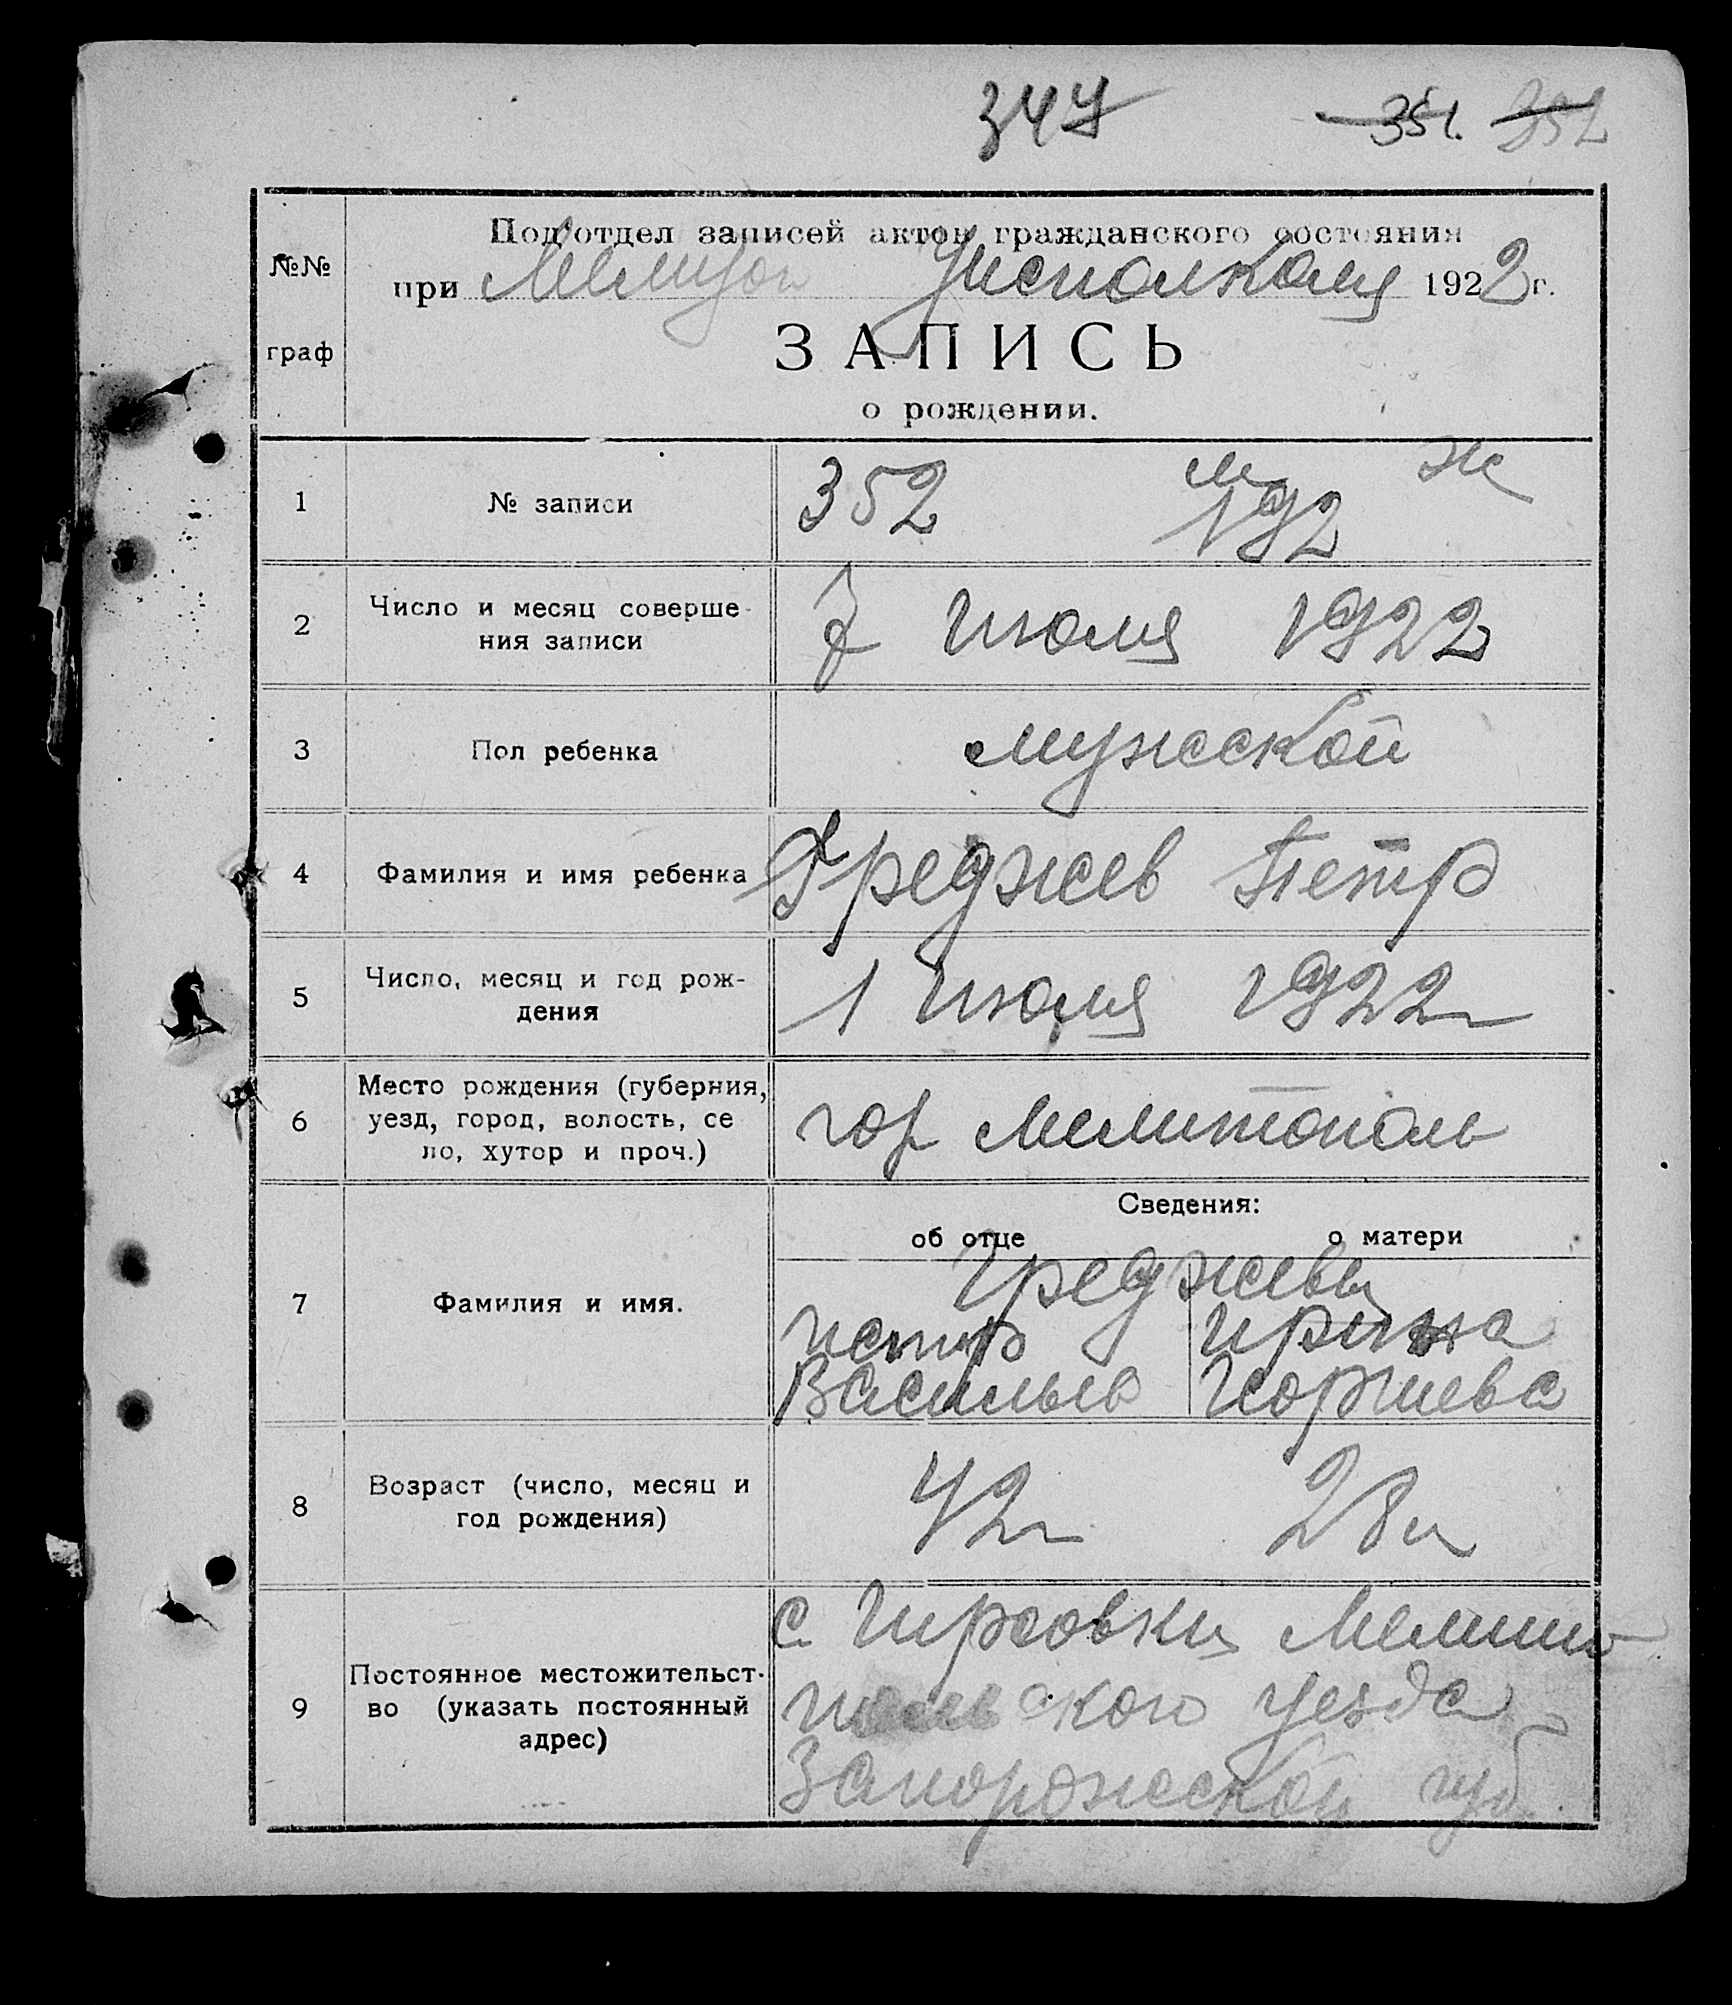 347 351. 352
Подотдел записей актов гражданского состояния
№№ при Мелитоп Уисполкома 1922 г.
граф ЗАПИСЬ
о рождении.
м ж
1 № записи 352 192
2 Число и месяц соверше-
ния записи 7 июля 1922
3 Пол ребенка мужской
4 Фамилия и имя ребенка Греджев Петр
5 Число, месяц и год рож-
дения 1 июля 1922 г
6 Место рождения (губерния,
уезд, город, волость, се
ло, хутор и проч.) гор Мелитополь
Сведения:
об отце о матери
Греджевы
7 Фамилия и имя. Петр Ирина
Васильев Георгиева
8 Возраст (число, месяц и
год рождения) 42 г 28 л
с Гирсовки Мелито
9 Постоянное местожительст-
во (указать постоянный
адрес) польского уезда
Запорожской губ.